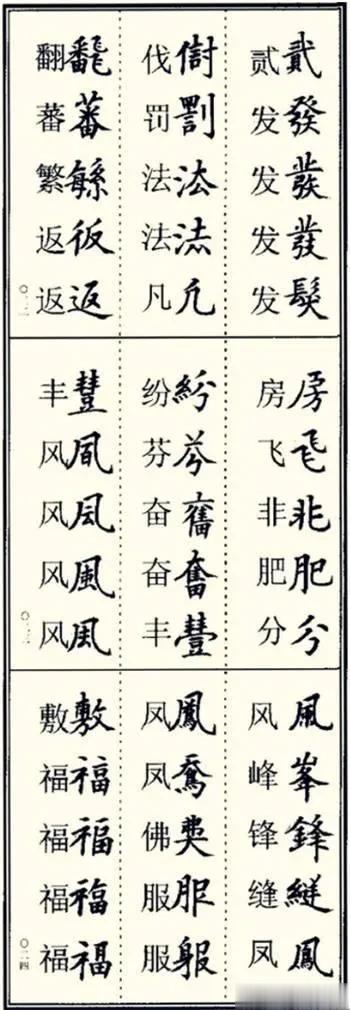 贰貳
发發
发發
发發
发髮
伐
罚罰
法㳒
法
凡凢
翻飜
蕃蕃
繁緐
返仮
返返
房房
飞
非非
肥肥
分分
纷紛
芬芬
奋奮
奋奮
丰豐
丰豐
风凬
风凨
风風
风凨
风風
峰峯
锋鋒
缝縫
凤鳳
凤鳳
凤
佛
服服
服
敷敷
福福
福福
福福
福福
〇二四